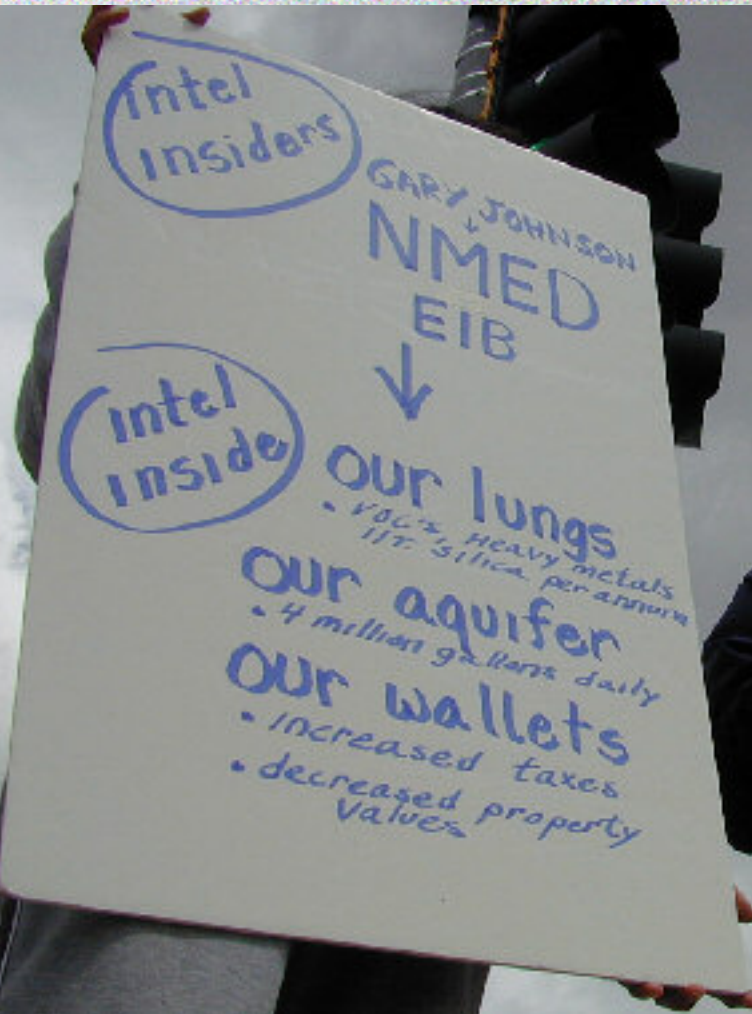 intel
insiders
GARY JOHNSON
NMED
EIB
intel
inside
our lungs
• VOC's, Heavy metals
silica per annum
our aquifer
• 4 million gallons daily
our wallets
• increased taxes
• decreased property
values